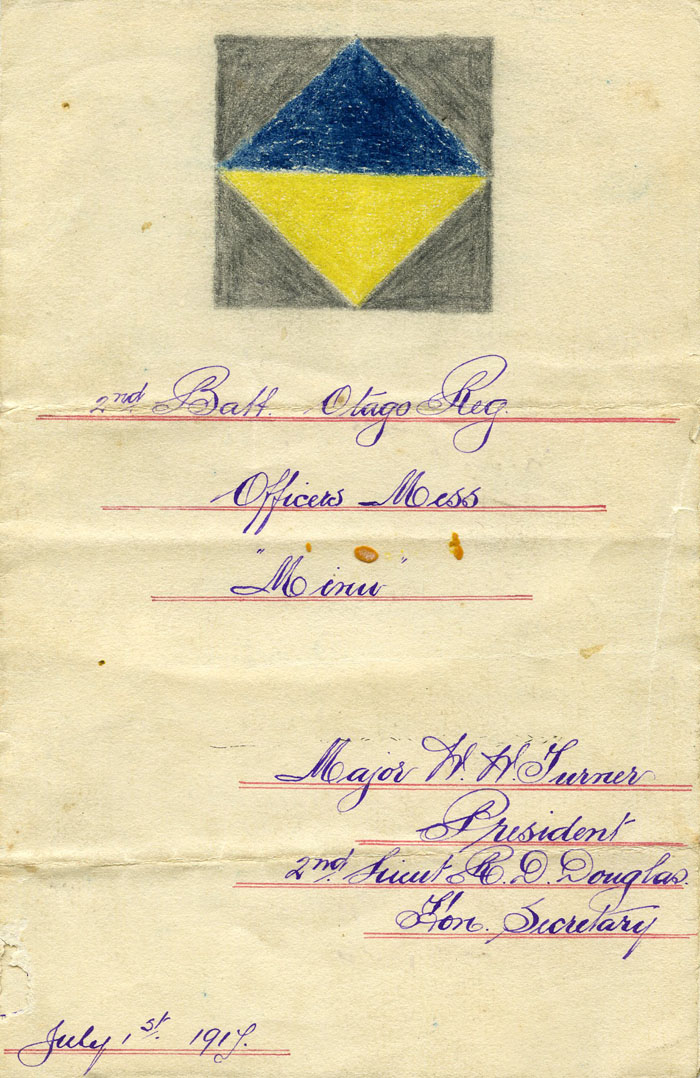 2nd. Batt. Otago Reg.
Officers Mess
"Minu"
Major W. W. Turner
President
2nd. Lieut R. D. Douglas.
Hon. Secretary
July 1st. 1917.